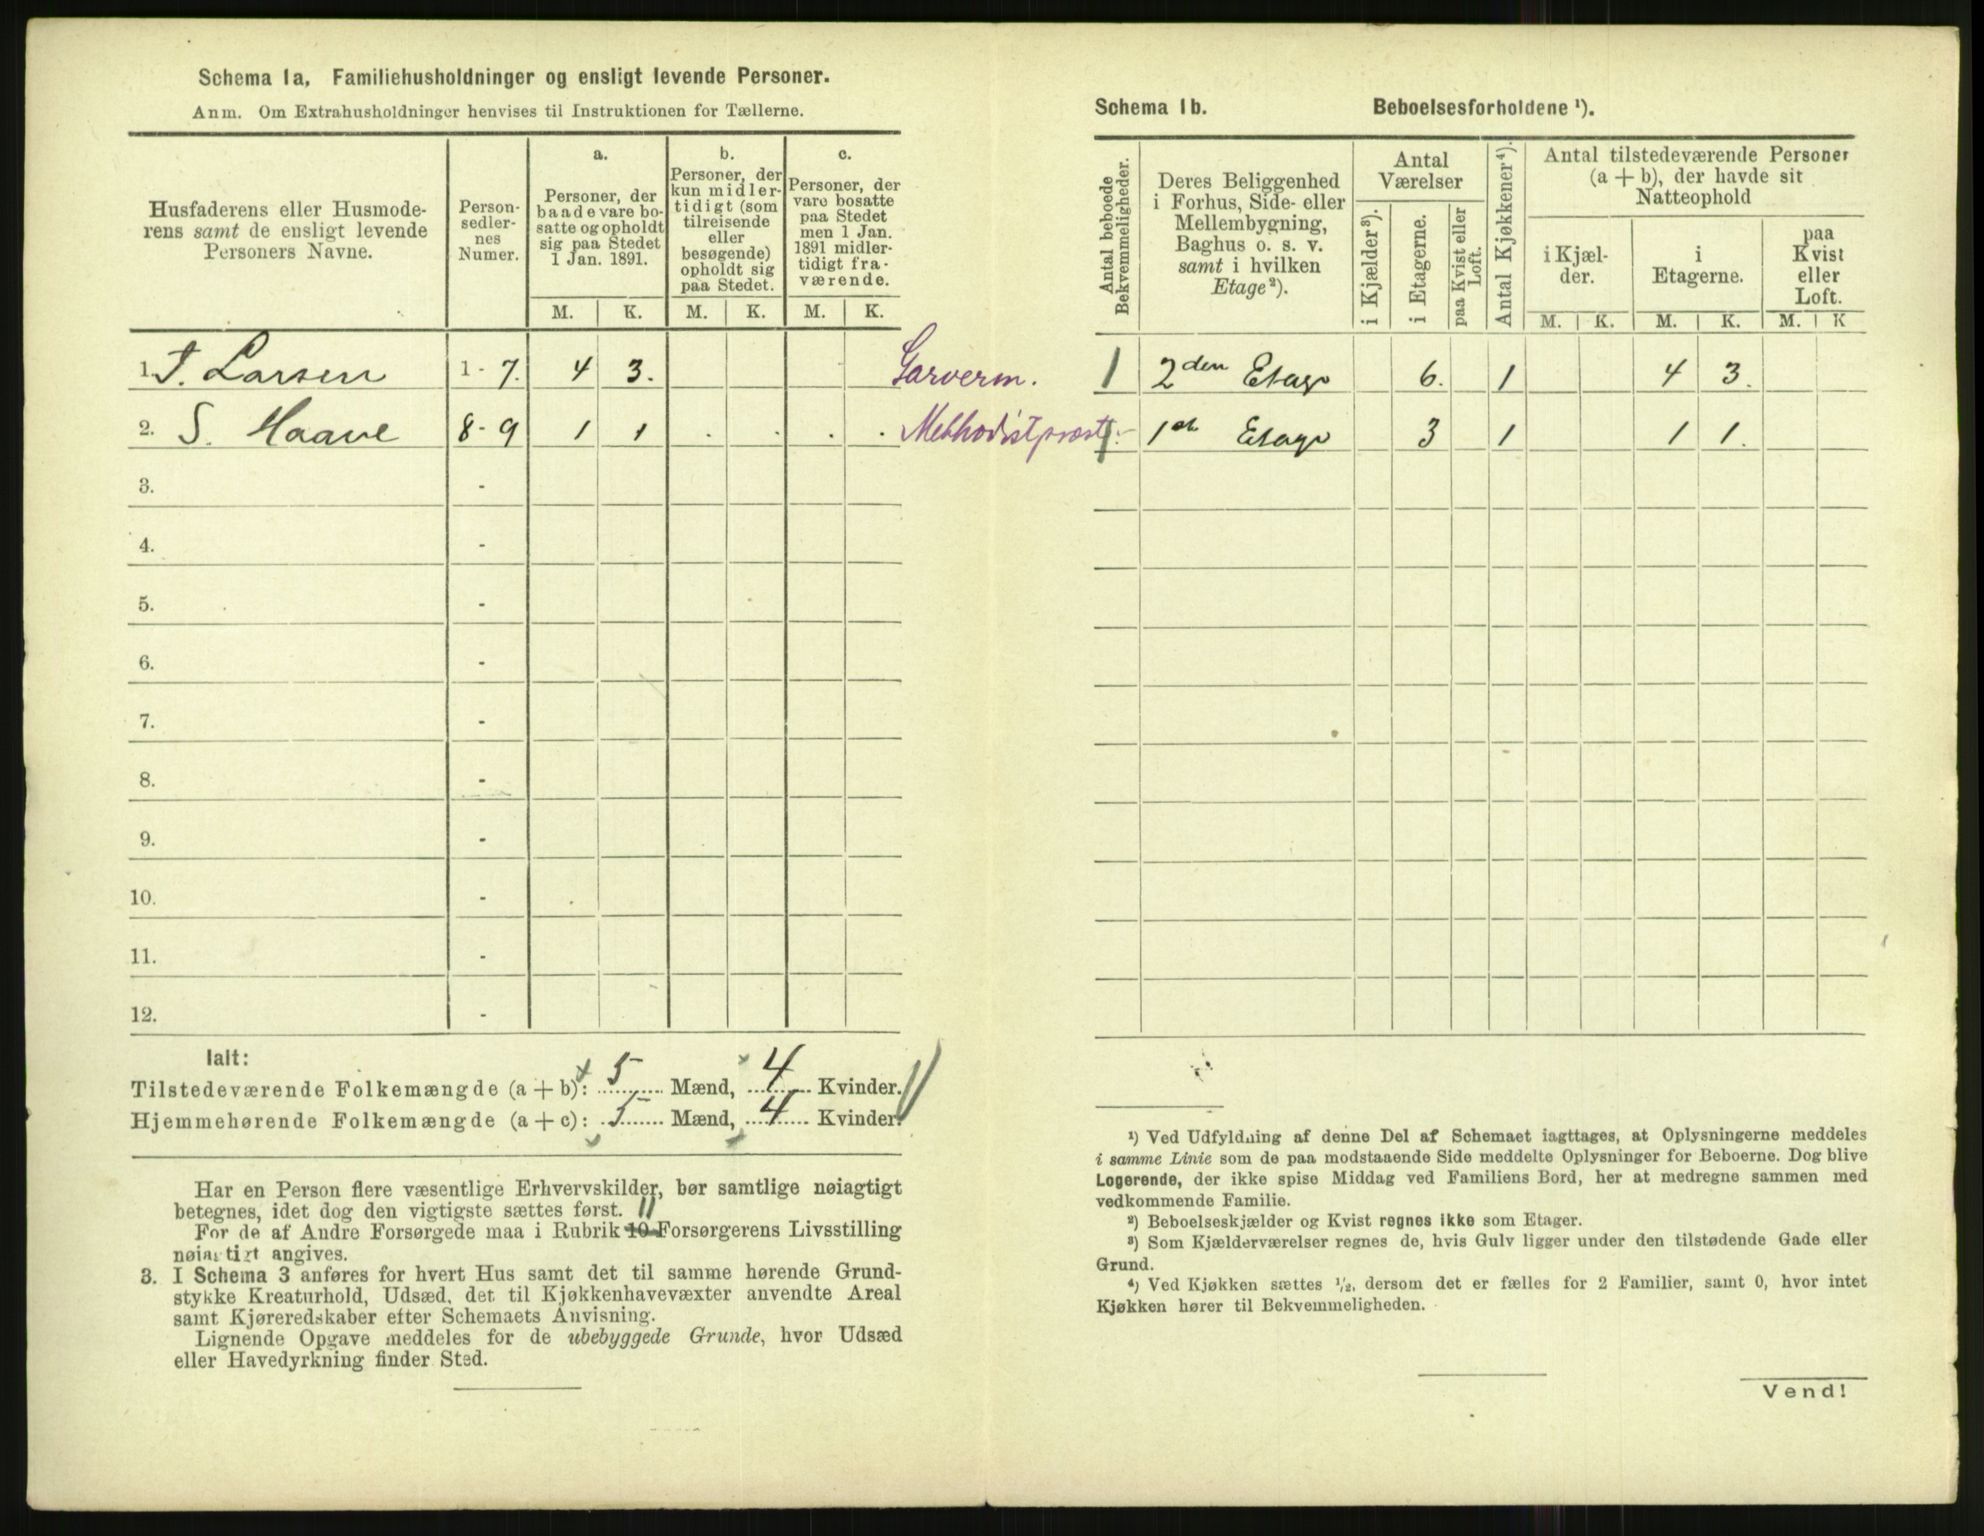 Schema 1a, Familiehusholdninger og ensligt levende Personer.
Anm. Om Extrahusholdninger henvises til Instruktionen for Tællerne.
Husfaderens eller Husmode-
rens samt de ensligt levende
Personers Navne.
Person-
sedler-
nes
Numer.
a.
Personer, der
baade vare bo-
satte og opholdt
sig paa Stedet
1 Jan. 1891.
b.
Personer, der
kun midler-
tidigt (som
tilreisende
eller
besøgende)
opholdt sig
paa Stedet.
c.
Personer, der
vare bosatte
paa Stedet
men 1 Jan.
1891 midler-
tidigt fra-
værende.
M. K. M. K. M. K.
1. J. Larsen 1 - 7. 4 3. Garverm.
2. S. Haave 8 - 9 1 1 . . . . Methodistpræst.
3. -
4. -
5. -
6. -
7. -
8. -
9. -
10. -
11. -
12. -
Ialt:
Tilstedeværende Folkemængde (a + b): 5 Mænd, 4 Kvinder.
Hjemmehørende Folkemængde (a + c): 5 Mænd, 4 Kvinder.
Har en Person flere væsentlige Erhvervskilder, bør samtlige nøiagtigt
betegnes, idet dog den vigtigste sættes først. 11
For de af Andre Forsørgede maa i Rubrik 10 Forsørgerens Livsstilling
nøiagtigt angives.
3. I Schema 3 anføres for hvert Hus samt det til samme hørende Grund-
stykke Kreaturhold, Udsæd, det til Kjøkkenhavevæxter anvendte Areal
samt Kjøreredskaber efter Schemaets Anvisning.
Lignende Opgave meddeles for de ubebyggede Grunde, hvor Udsæd
eller Havedyrkning finder Sted.
Schema 1b. Beboelsesforholdene ¹).
Antal beboede
Bekvemmeligheder.
Deres Beliggenhed
i Forhus, Side- eller
Mellembygning,
Baghus o. s. v.
samt i hvilken
Etage²).
Antal
Værelser
i Kjælder³).
i Etagerne.
paa Kvist eller
Loft.
Antal Kjøkkener⁴).
Antal tilstedeværende Personer
(a + b), der havde sit
Natteophold
i Kjæl-
der.
i
Etagerne.
paa
Kvist
eller
Loft.
M. K. M. K. M. K
1 2den Etage 6. 1 4 3.
1 1ste Etage 3 1 1 1.
¹) Ved Udfyldning af denne Del af Schemaet iagttages, at Oplysningerne meddeles
i samme Linie som de paa modstaaende Side meddelte Oplysninger for Beboerne. Dog blive
Logerende, der ikke spise Middag ved Familiens Bord, her at medregne sammen med
vedkommende Familie.
²) Beboelseskjælder og Kvist regnes ikke som Etager.
³) Som Kjælderværelser regnes de, hvis Gulv ligger under den tilstødende Gade eller
Grund.
⁴) Ved Kjøkken sættes ½, dersom det er fælles for 2 Familier, samt 0, hvor intet
Kjøkken hører til Bekvemmeligheden.
Vend!